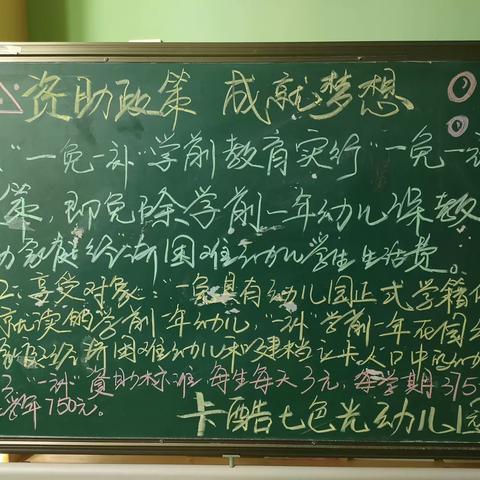 资助政策 成就梦想
"一免一补"学前教育实行"一免一补
策,即免除学前一年幼儿保教
家庭经济困难幼儿学生生活费。
2:享受对象:"一免具有幼儿园正式学籍
就读的学前一年幼儿,"一补"学前一年在园
家庭经济困难幼儿和建档立卡人口中的幼
3."一补"资助标准 每生每天3元,每学期375
学年750元。
卡酷七色光幼儿园